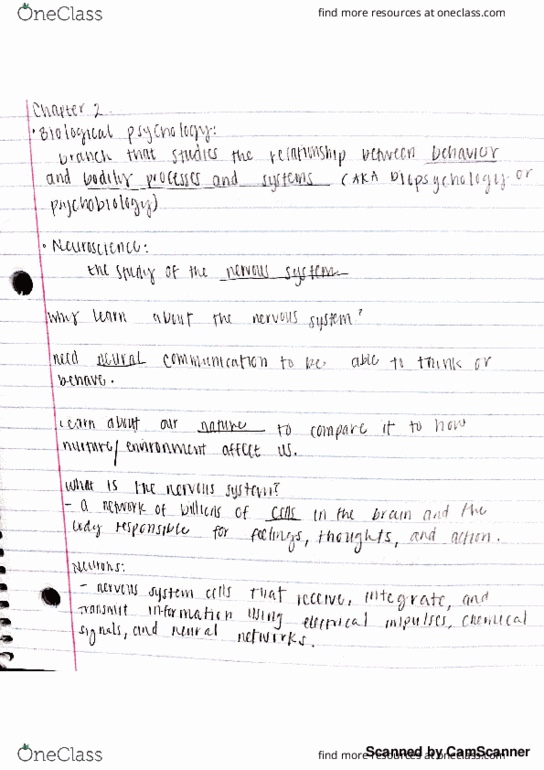 OneClass
find more resources at oneclass.com
Chapter 2
• Biological psychology:
branch that studies the relationship between behavior
and bodily processes and systems (AKA biopsychology or
psychobiology)
• Neuroscience:
the study of the nervous system
Why learn about the nervous system?
need neural communication to be able to think or
behave.
Learn about our nature to compare it to how
nurture/environment affect us.
What is the nervous system?
- a network of billions of cells in the brain and the
body responsible for feelings, thoughts, and action.
Neurons:
- nervous system cells that receive, integrate, and
transmit information using electrical impulses, chemical
signals, and neural networks.
OneClass
find more resources at oneclass.com
Scanned by CamScanner